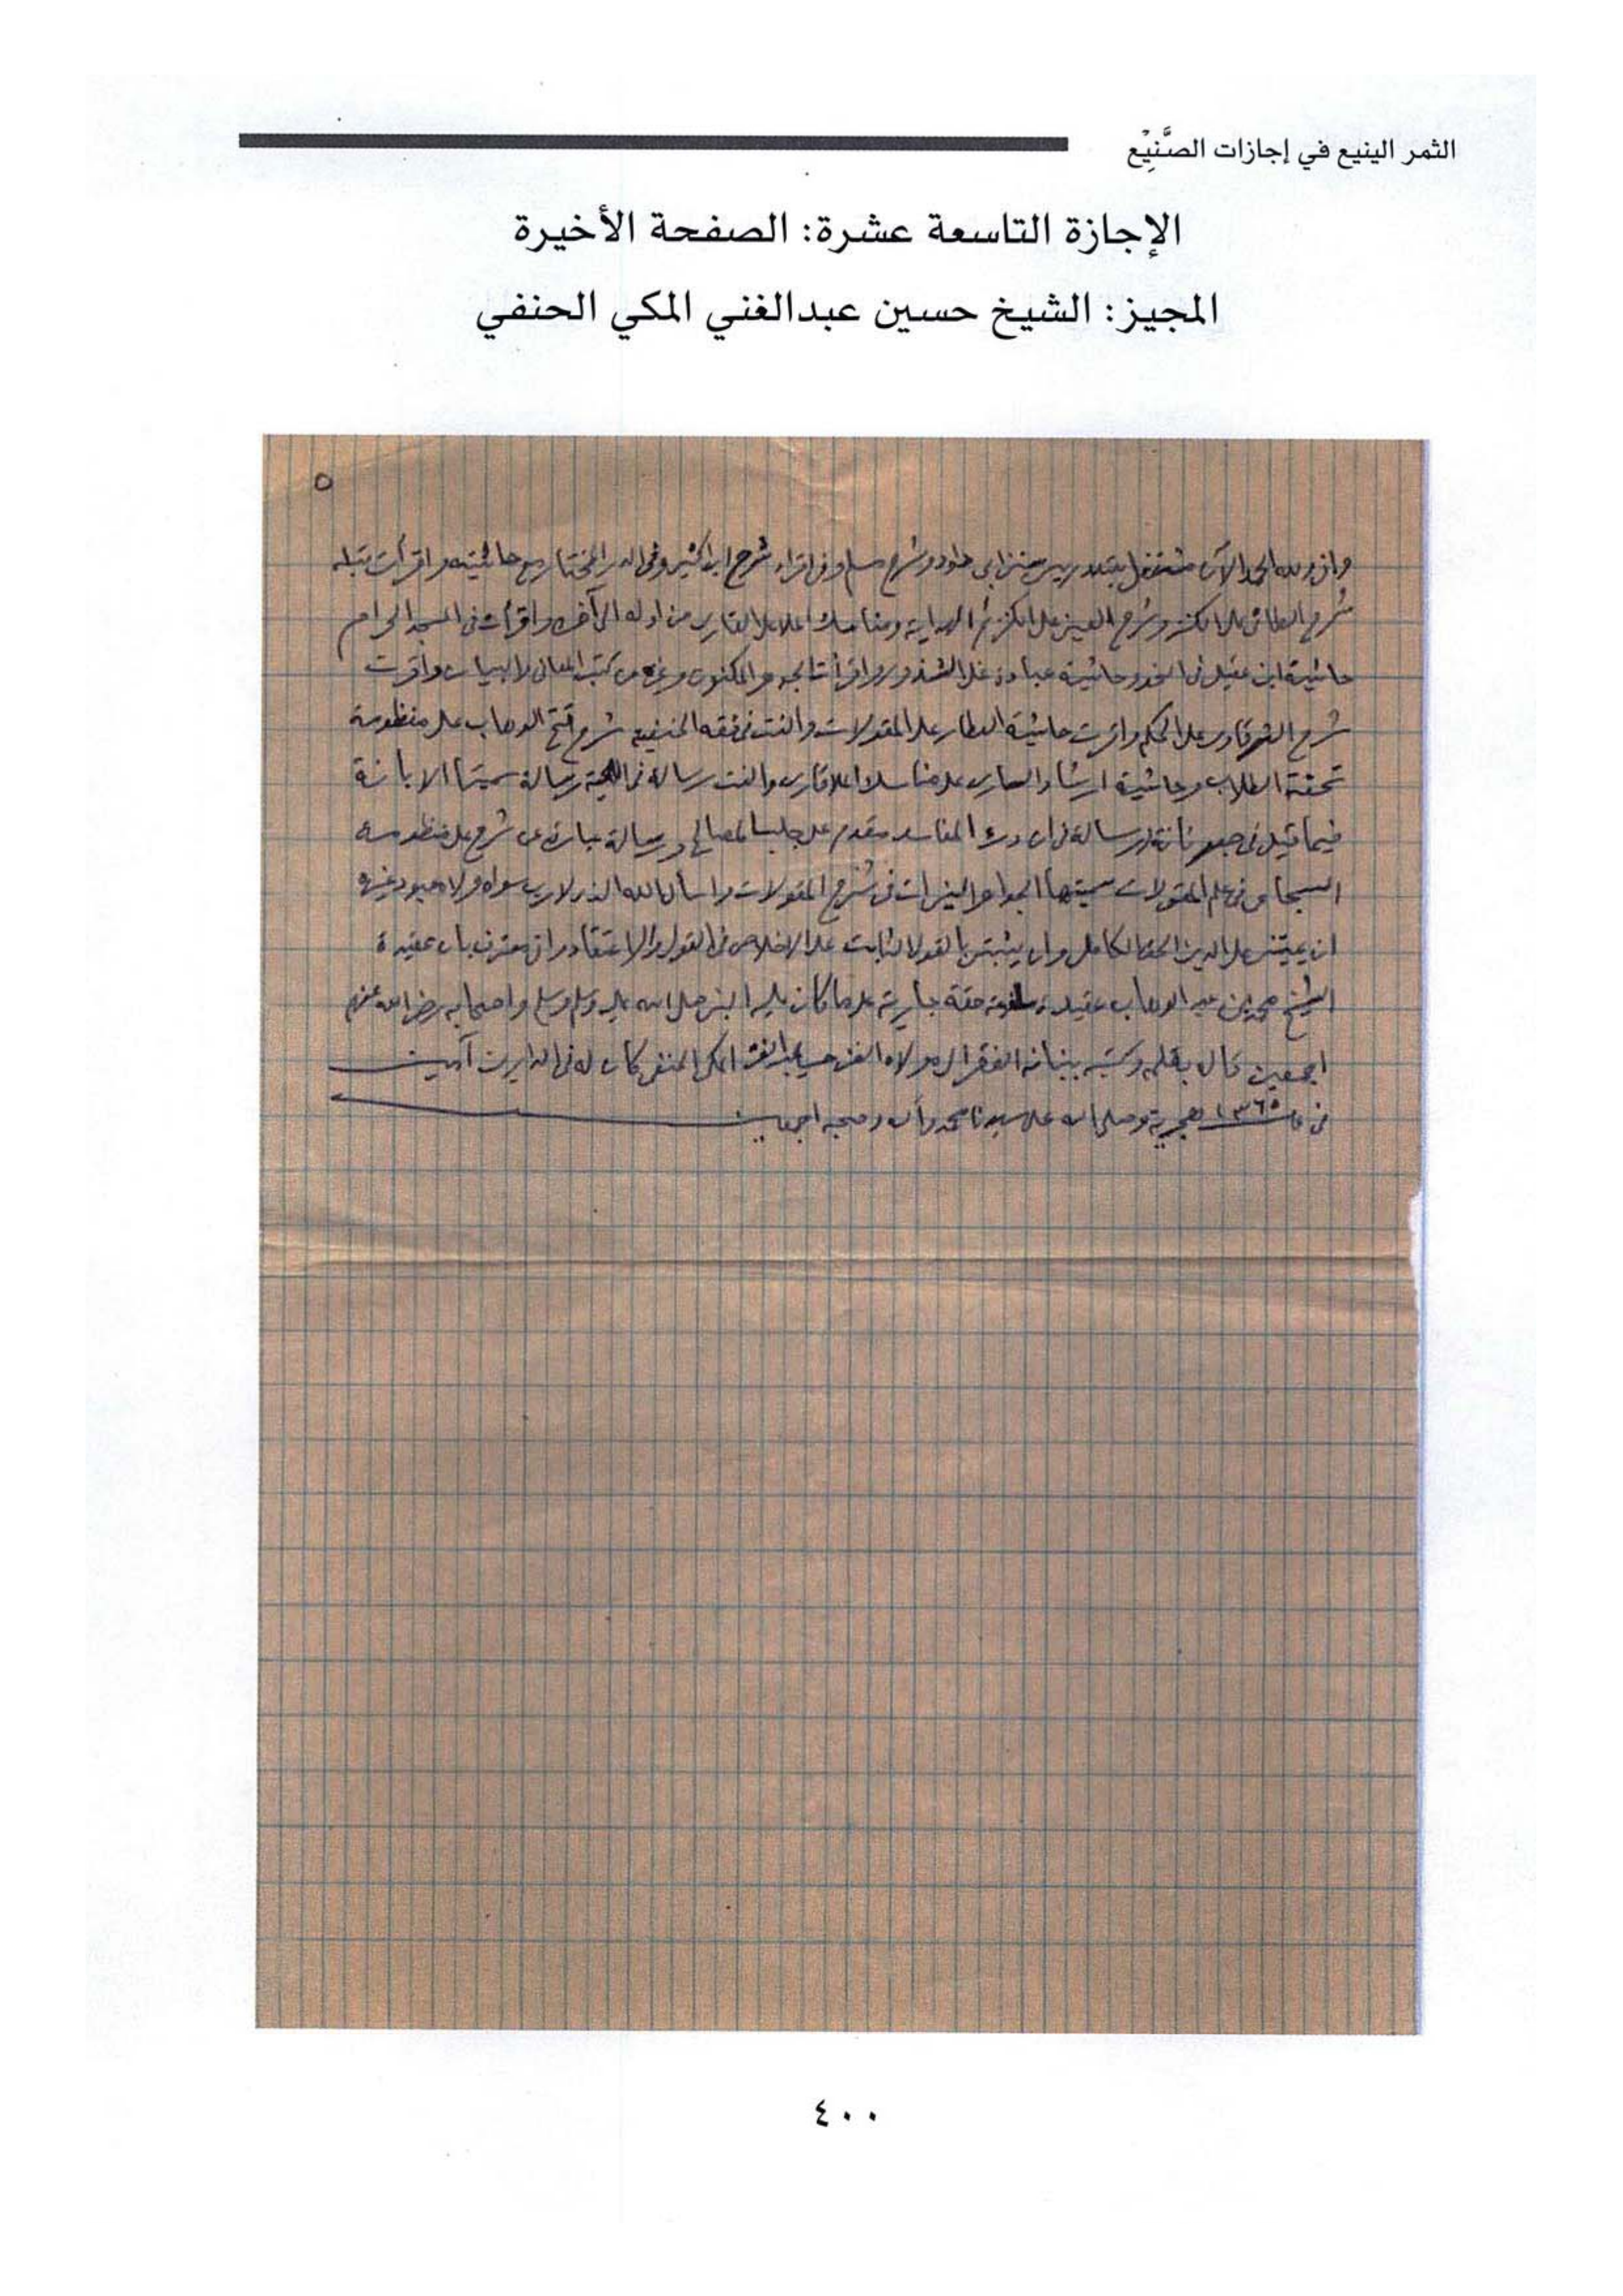 الثمر الينيع في إجازات الصَّنِيْع
الإجازة التاسعة عشرة: الصفحة الأخيرة
المجيز: الشيخ حسين عبدالغني المكي الحنفي
٥
واني ولله الحمد الآن مشتغل بتدريس سنن ابي داود وشرح مسلم وفي اقراء شرح ابن كثير وفي الدر المختار مع حاشيته واقرأت قبله
شرح الطائي على الكنز وشرح العيني على الكنز ثم الهداية ومناسك ملا على القاري من اوله الى آخره واقرأت في المسجد الحرام
حاشية ابن عقيل في النحو وحاشية عبادة على الشذور واقرأت الجوهر المكنون وغيره من كتب المعاني والبيان واقرت
شرح الشرقاوي على الحكم واقرت حاشية العطار على المقولات والفت في فقه الحنفيه شرح فتح الوهاب على منظومة
تحفة الطلاب وحاشية ارشاد الساري على مناسك ملا قاري والفت رسالة في رسالة سميتها الابانة
فيما قيل في ورسالة في ان درء المفاسد مقدم على جلب المصالح ورسالة عبارة عن شرح على منظومة
السجاعي في علم المقولات سميتها الجواهر النيرات في شرح المقولات واسأل الله الذي لا رب سواه ولا معبود غيره
ان يميتني على الدين الحق الكامل وان يثبتني بالقول الثابت على الاخلاص في القول والاعتقاد واني معترف بان عقيدة
الشيخ محمد بن عبد الوهاب عقيدة سلفية حقة جارية على ما كان عليه النبي صلى الله عليه وسلم واصحابه رضي الله عنهم
اجمعين قال بفمه وكتبه ببنانه الفقير الى مولاه الغني حسين عبد الغني المكي الحنفي كان له في الدارين آمين
في ١٣٦٥ هجرية وصلى الله على سيدنا محمد وآله وصحبه اجمعين
٤٠٠